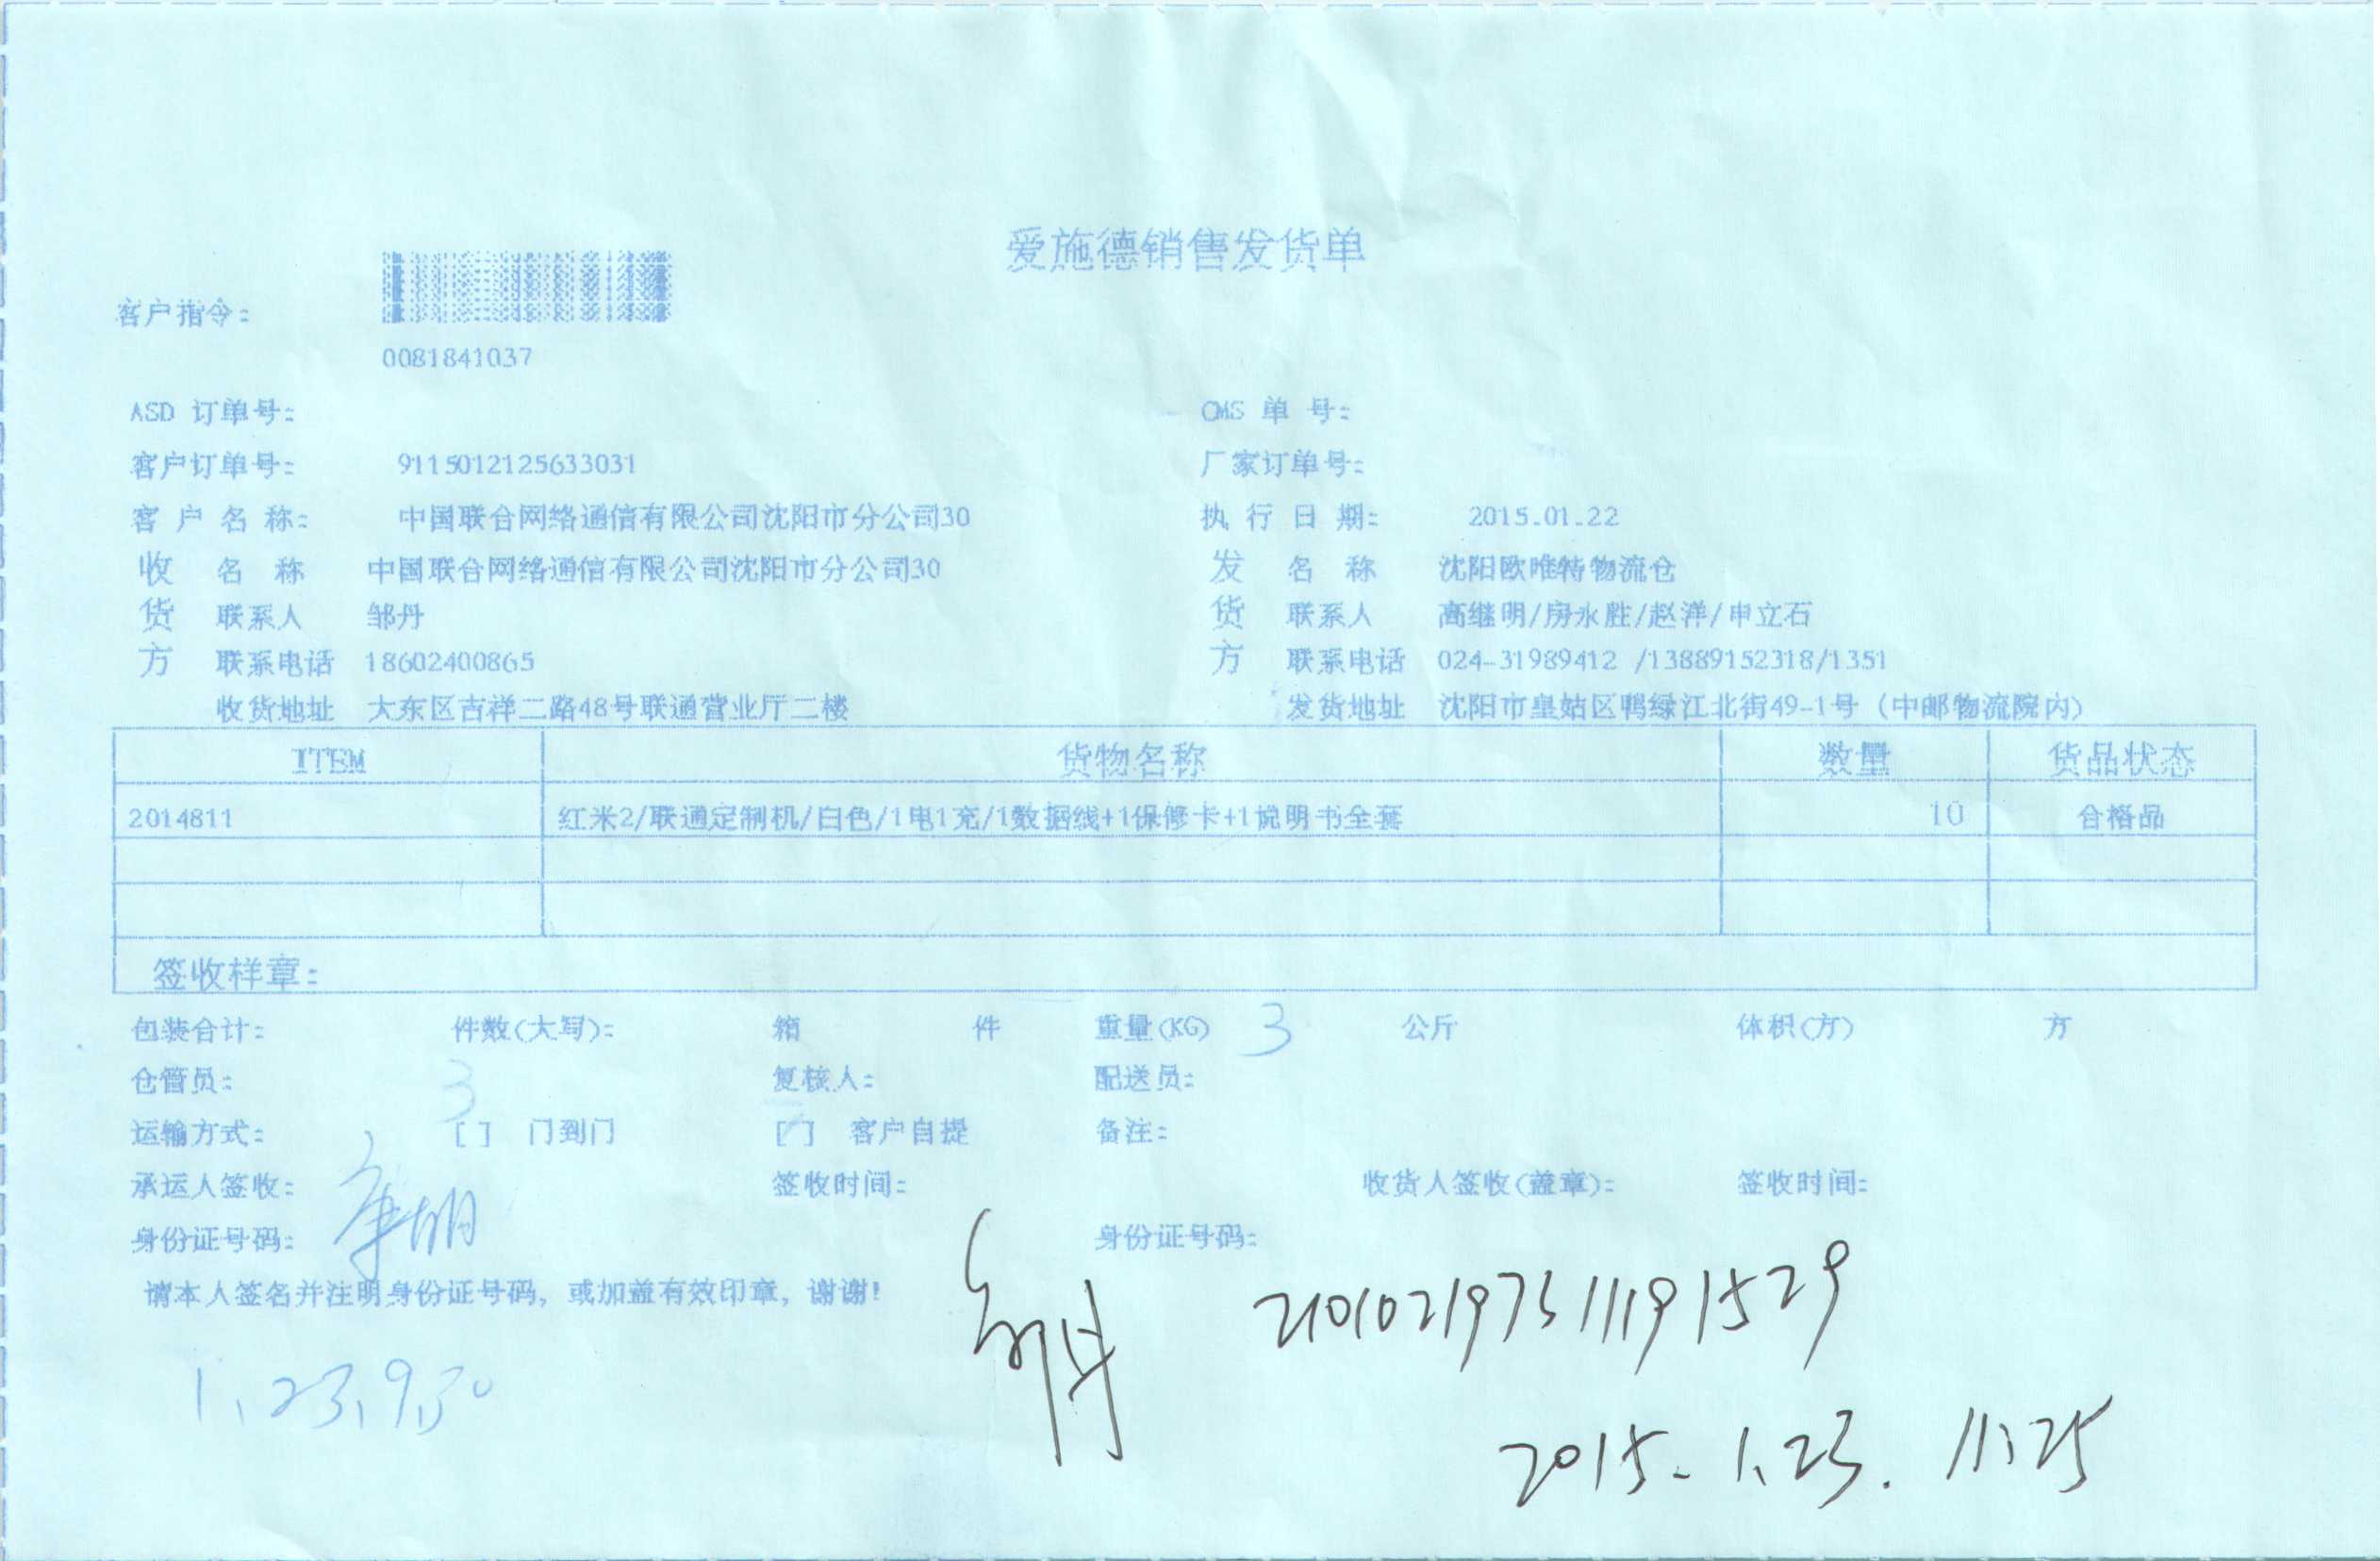 爱施德销售发货单
客户指令:
0081841037
ASD 订单号: CMS 单 号:
客户订单号: 9115012125633031 厂家订单号:
客 户 名 称: 中国联合网络通信有限公司沈阳市分公司30 执 行 日 期: 2015.01.22
收 名 称 中国联合网络通信有限公司沈阳市分公司30 发 名 称 沈阳欧唯特物流仓
货 联系人 邹丹 货 联系人 高继明/房永胜/赵洋/申立石
方 联系电话 18602400865 方 联系电话 024-31989412 /13889152318/1351
收货地址 大东区吉祥二路48号联通营业厅二楼 发货地址 沈阳市皇姑区鸭绿江北街49-1号 (中邮物流院内)
ITEM 货物名称 数量 货品状态
2014811 红米2/联通定制机/白色/1电1充/1数据线+1保修卡+1说明书全套 10 合格品
签收样章:
包装合计: 件数(大写): 箱 件 重量(KG) 3 公斤 体积(方) 方
仓管员: 3 复核人: 配送员:
运输方式: [ ] 门到门 [ ] 客户自提 备注:
承运人签收: 签收时间: 收货人签收(盖章): 签收时间:
身份证号码: 身份证号码:
请本人签名并注明身份证号码, 或加盖有效印章, 谢谢!
邹丹 210102197311191529
1.23.9.30
2015.1.23. 11:25